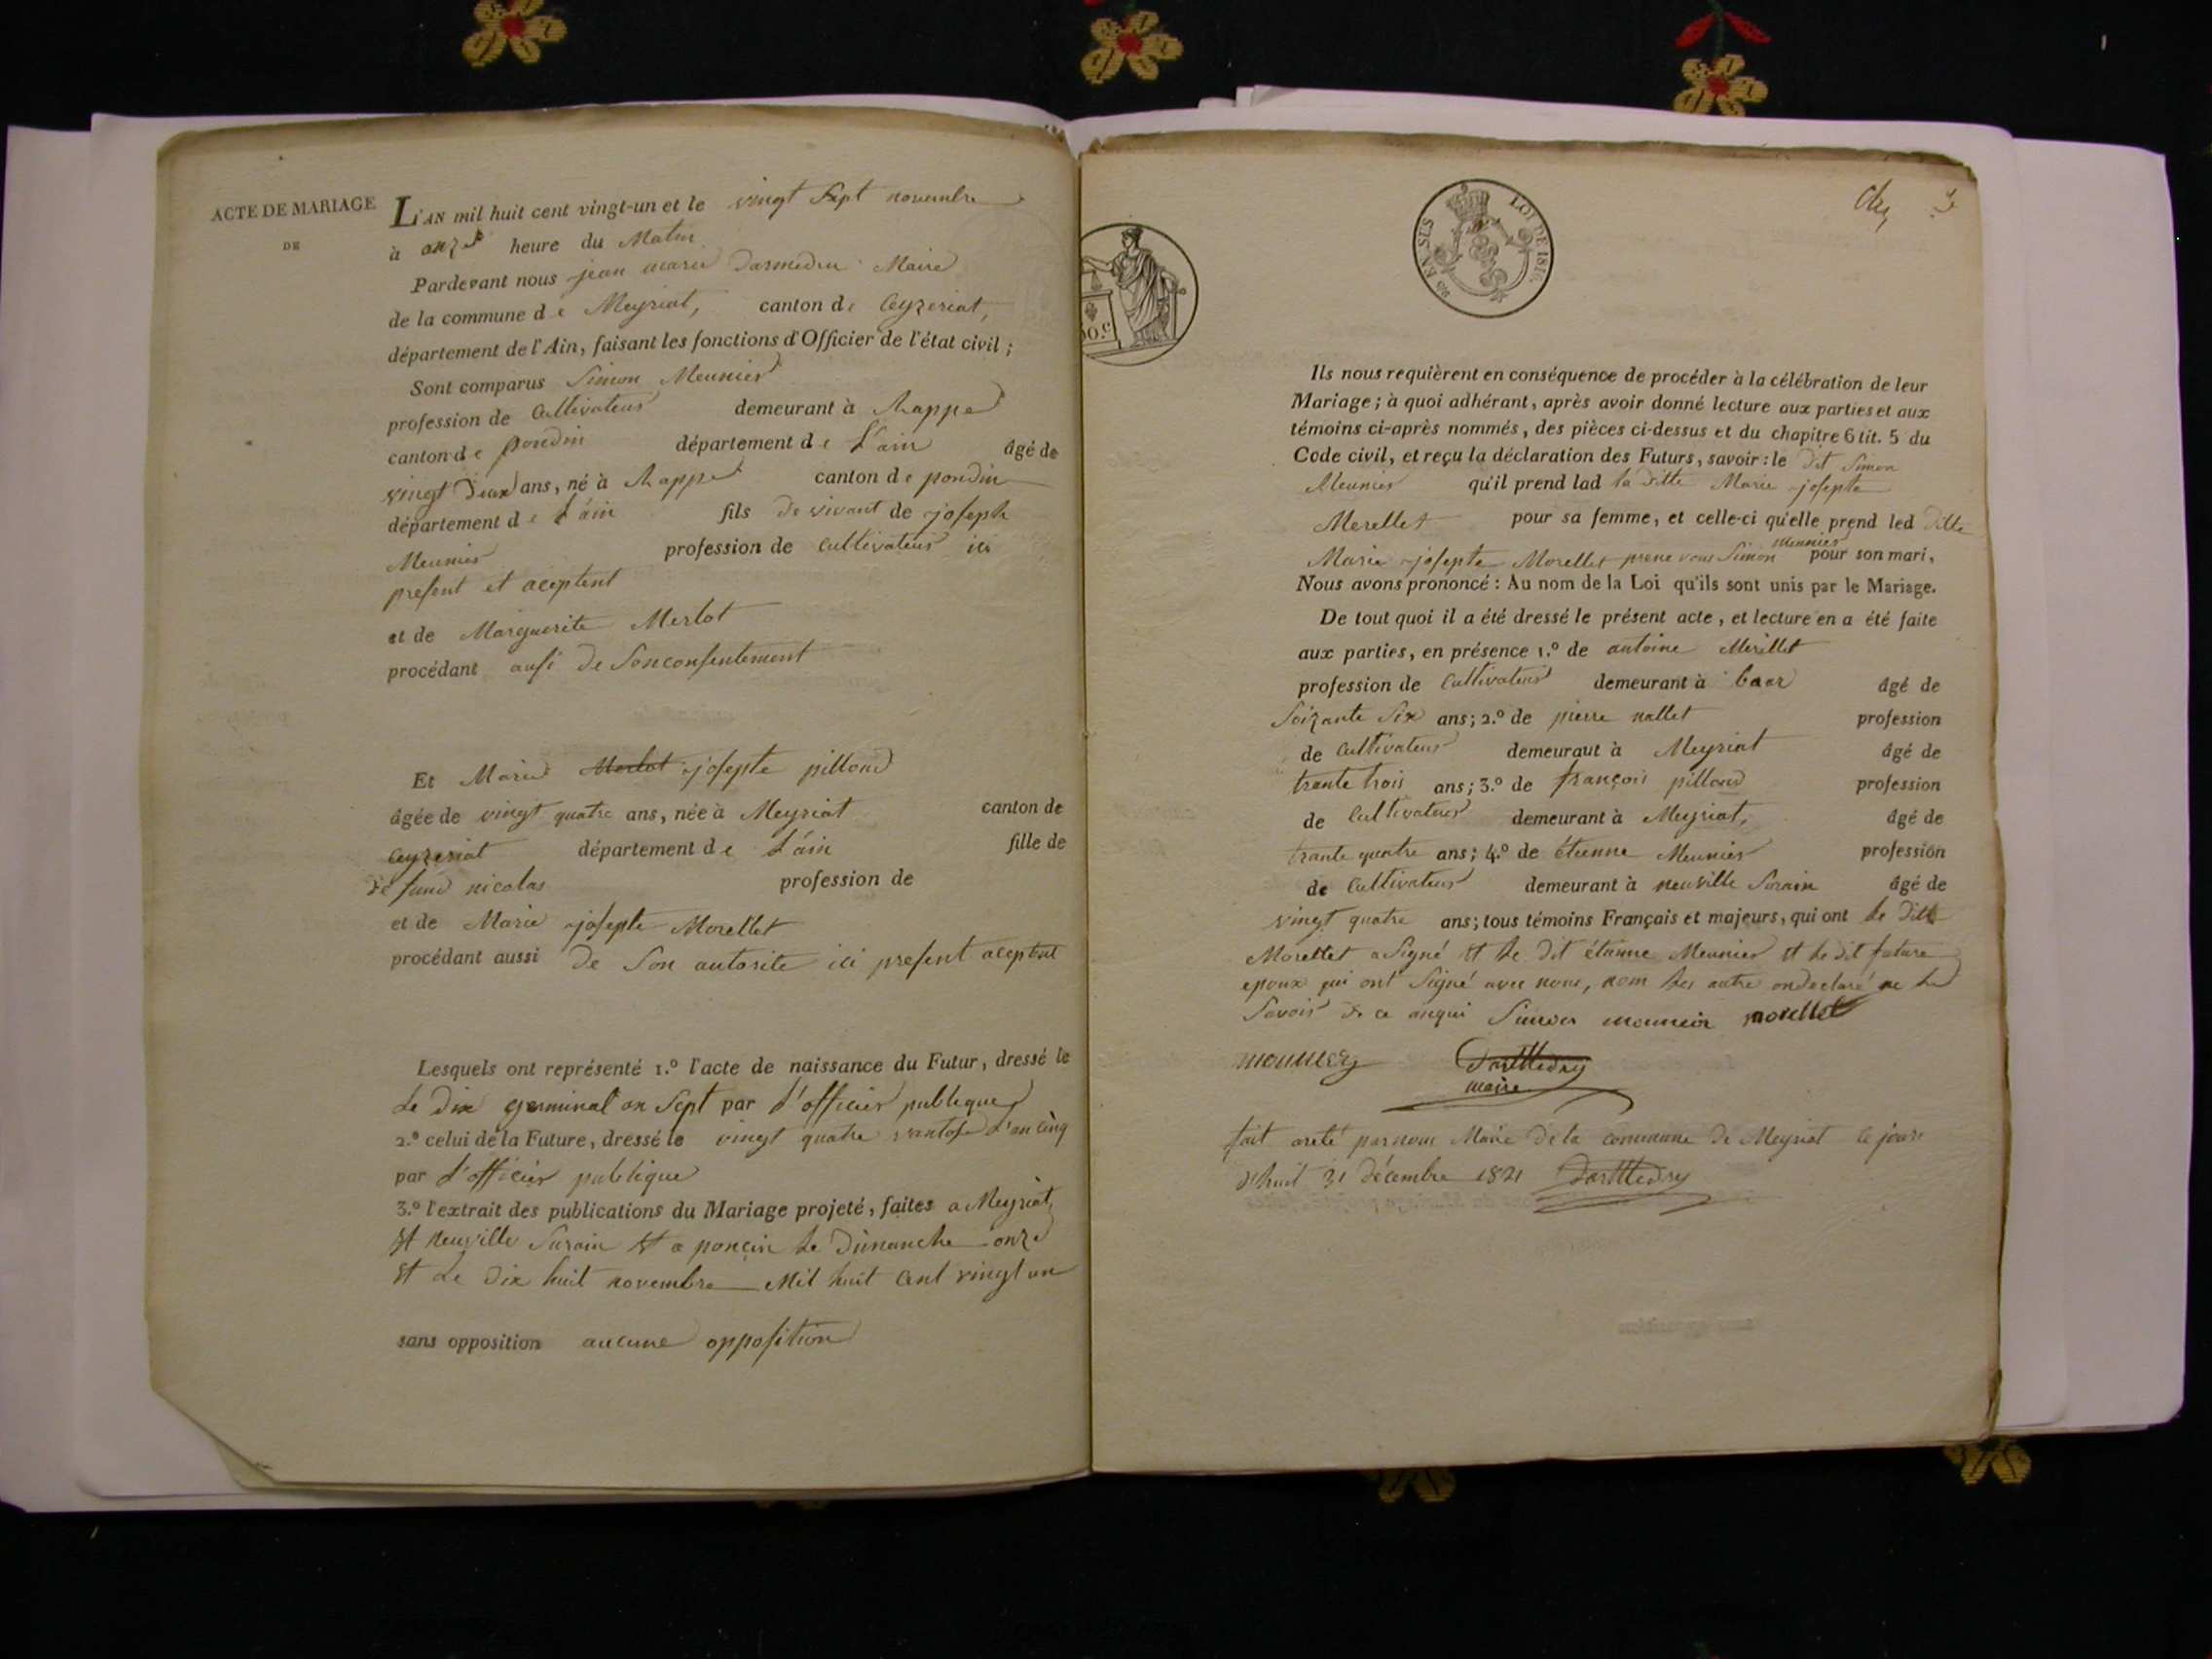 ACTE DE MARIAGE
DE
L'AN mil huit cent vingt-un et le vingt sept novembre
à onze heure du Matin
Pardevant nous jean marie Maire
de la commune de Meyriat, canton de Ceyzeriat,
département de l'Ain, faisant les fonctions d'Officier de l'état civil ;
Sont comparus Simon Meunier
profession de Cultivateur demeurant à
canton de pondin département de L'ain âgé de
vingt deux ans, né à canton de pondin
département de L'ain fils de vivant de joseph
Meunier profession de cultivateur ici
present et aceptent
et de Marguerite Merlot
procédant ausi de Sonconsentement
Et Marie Merlot josepte pilloud
âgée de vingt quatre ans, née à Meyriat canton de
Ceyzeriat département de L'ain fille de
nicolas profession de
et de Marie josepte Morellet
procédant aussi de Son autorite ici present aceptent
Lesquels ont représenté 1.º l'acte de naissance du Futur, dressé le
Le Dix germinal an Sept par L'officier publique
2.º celui de la Future, dressé le vingt quatre vantose L'an Cinq
par L'officier publique
3.º l'extrait des publications du Mariage projeté, faites a Meyriat,
Et Neuville Surain Et a poncin Le Dimanche onze
Et Le Dix huit novembre Mil huit Cent vingt un
sans opposition aucune opposition
EN SUS LOI DE 1816.
50.c
Ils nous requièrent en conséquence de procéder à la célébration de leur
Mariage ; à quoi adhérant, après avoir donné lecture aux parties et aux
témoins ci-après nommés, des pièces ci-dessus et du chapitre 6 tit. 5 du
Code civil, et reçu la déclaration des Futurs, savoir : le dit Simon
Meunier qu'il prend lad la ditte Marie josepte
Merellet pour sa femme, et celle-ci qu'elle prend led ditte
Meunier
Marie josepte Morellet prene vous Simon pour son mari,
Nous avons prononcé : Au nom de la Loi qu'ils sont unis par le Mariage.
De tout quoi il a été dressé le présent acte, et lecture en a été faite
aux parties, en présence 1.º de antoine Merellet
profession de Cultivateur demeurant à âgé de
Soizante Six ans ; 2.º de pierre nallet profession
de Cultivateur demeurant à Meyriat âgé de
trante trois ans ; 3.º de françois pilloud profession
de Cultivateur demeurant à Meyriat, âgé de
trante quatre ans ; 4.º de étienne Meunier profession
de Cultivateur demeurant à neuville Surain âgé de
vingt quatre ans ; tous témoins Français et majeurs, qui ont Le ditt
Morellet a Signé Et Le Dit étienne Meunier Et Le dit future
epoux qui ont Signé avec nous, nom Les autre ondeclaré ne Le
Savoir de ce anqui Simon mounier morellet
mounier
maire
fait areté parnous Maire De la commune De Meyriat Ce jour
d'huit 31 décembre 1821